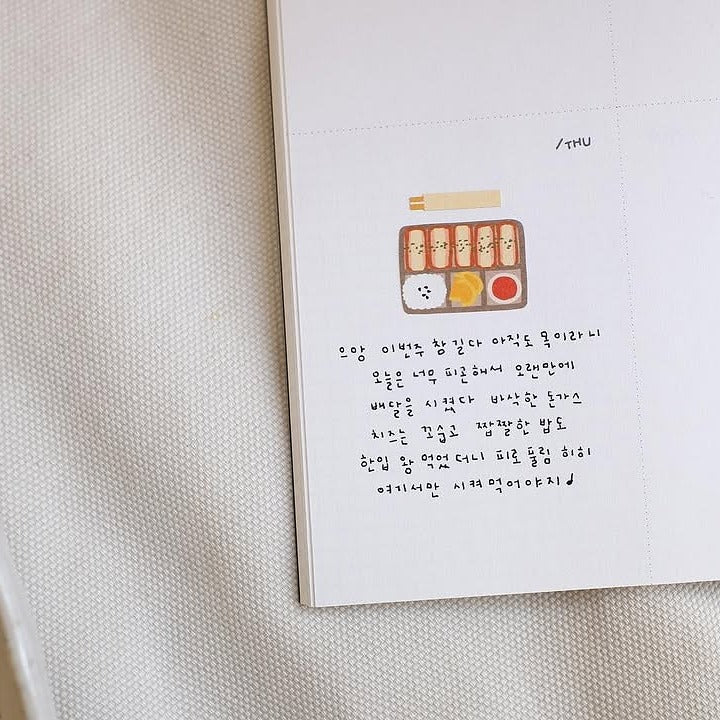 /THU
으앙 이번주 참 길다 아직도 목이라니
오늘은 너무 피곤해서 오랜만에
배달을 시켰다 바삭한 돈가스
치즈는 꼬숩고 짭짤한 밥도
한입 왕 먹었더니 피로 풀림 히히
여기서만 시켜 먹어야지♪